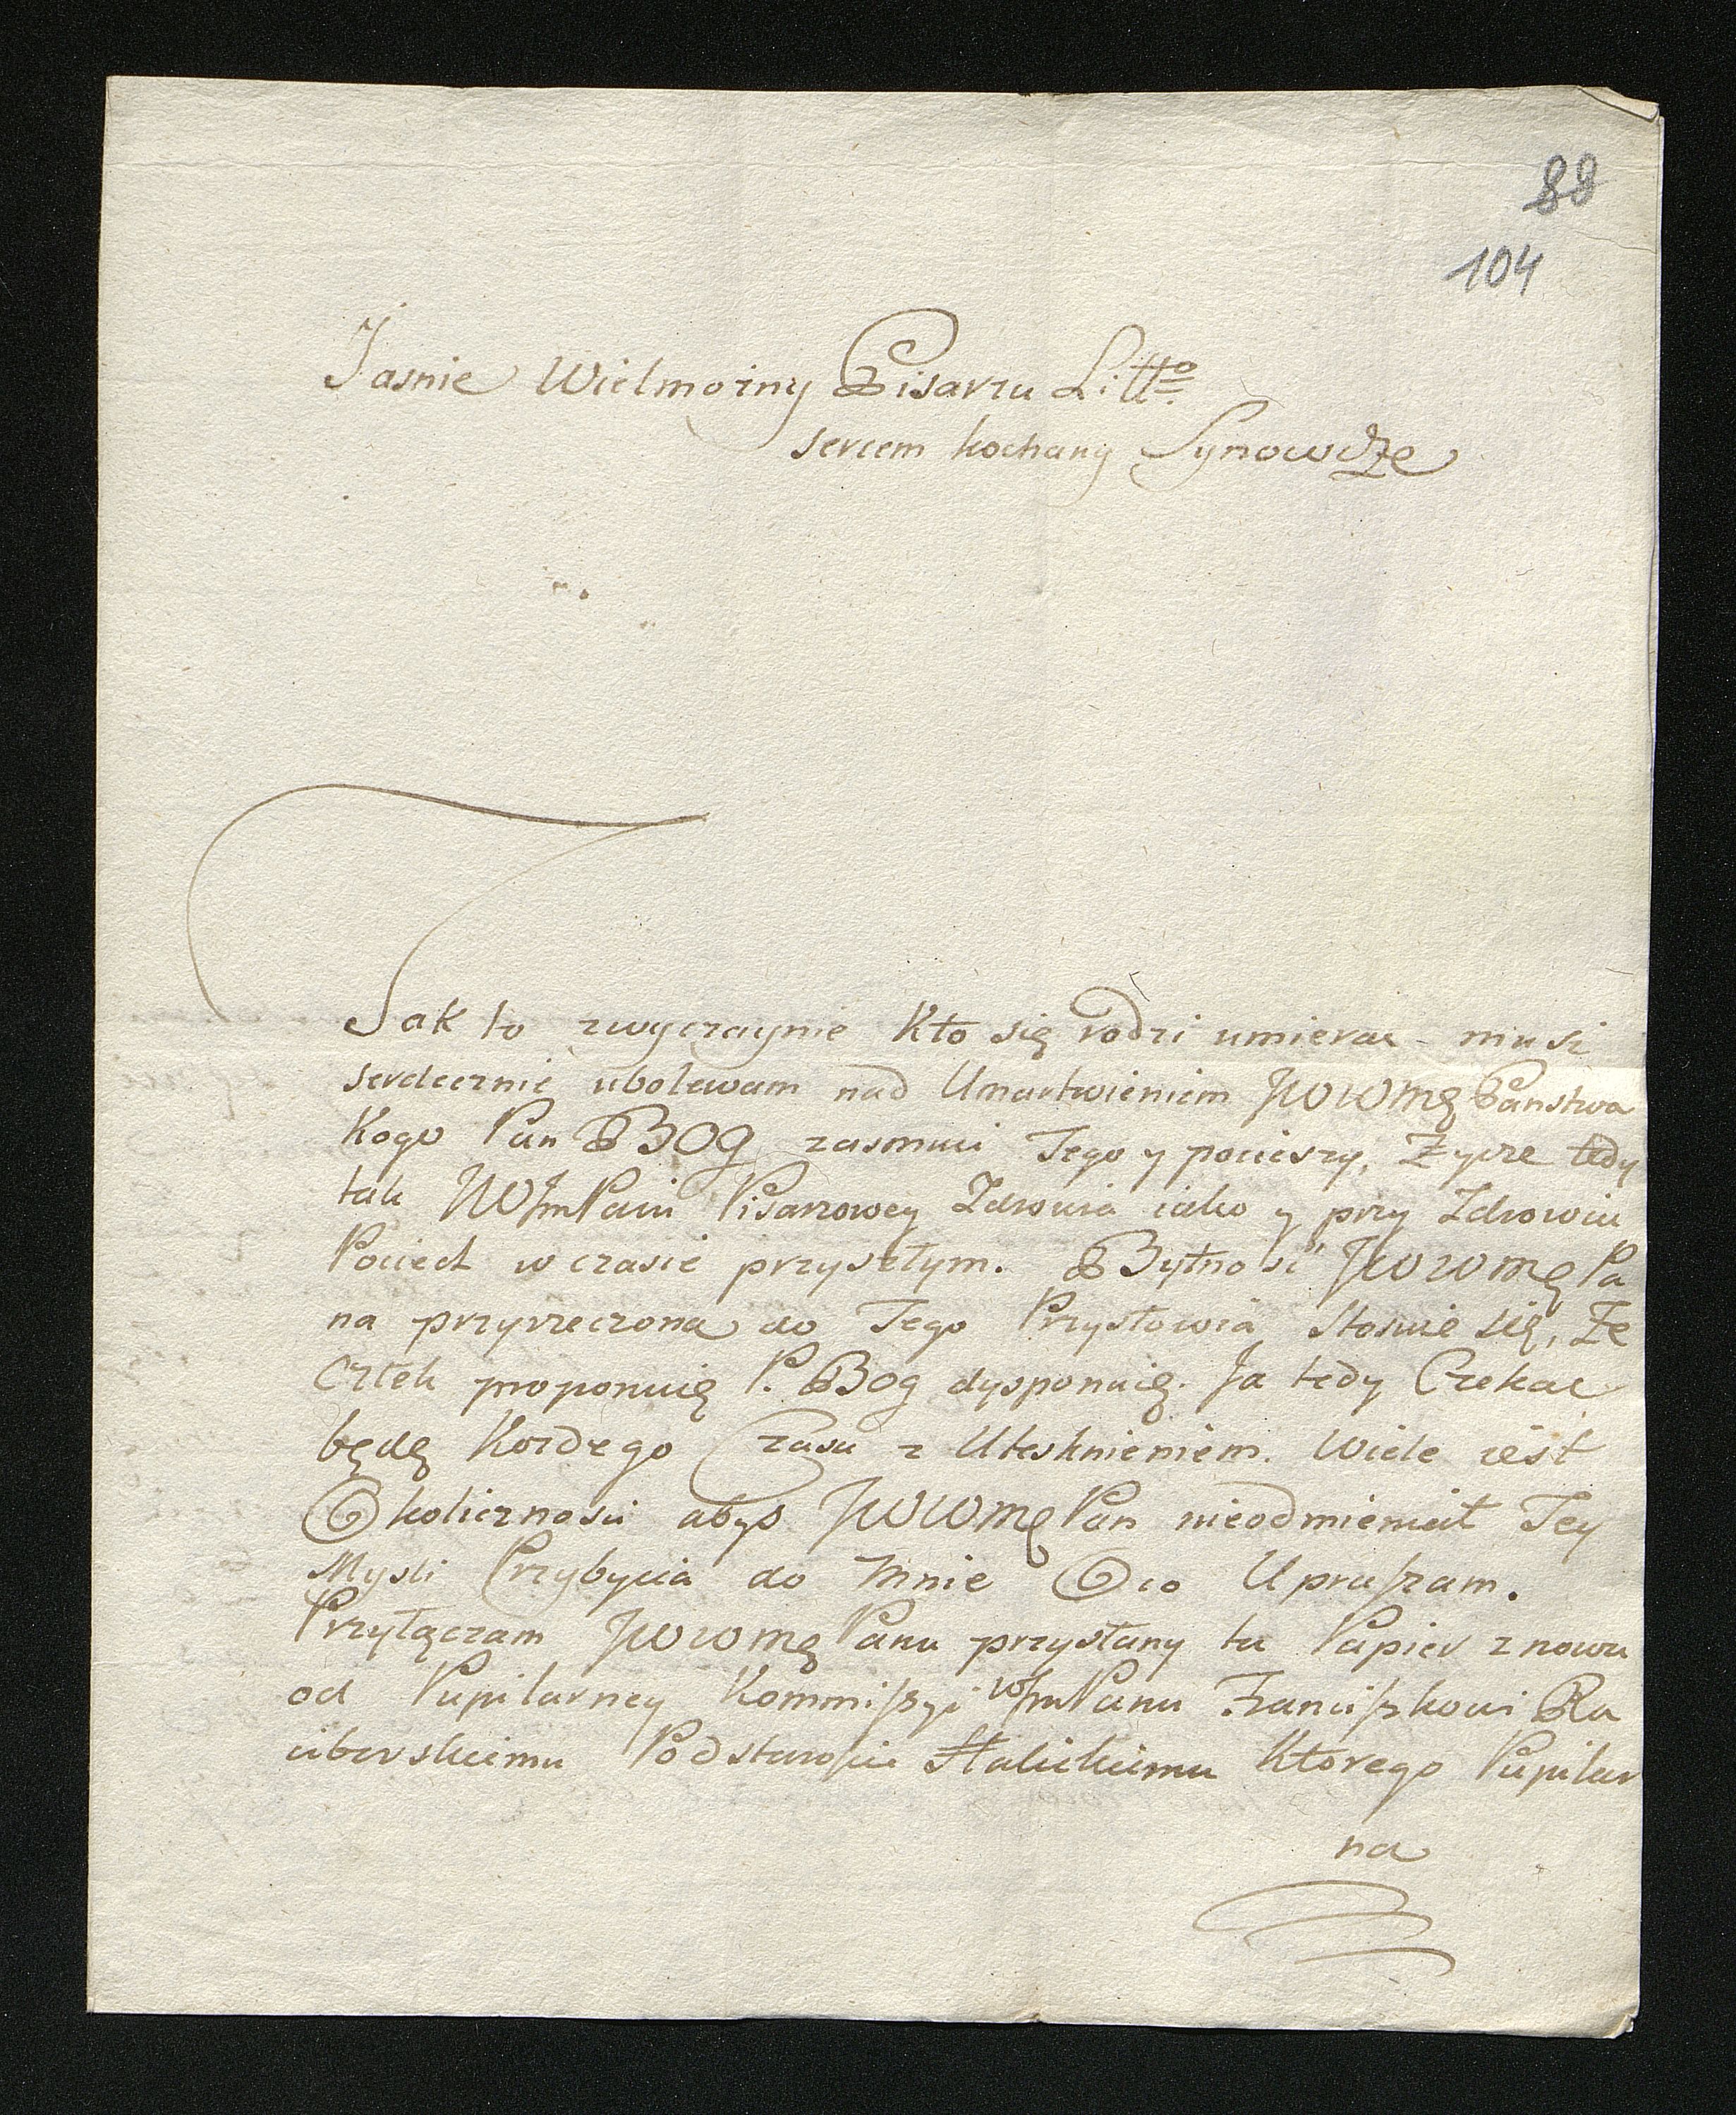 88
104
Jasnie Wielmozny Pisarzu Litto
sercem kochany Synowcze
Jak to zwyczaynie Kto się rodzi umierac musi
serdecznie ubolewam nad Umartwieniem JWWMę Państwa
Kogo Pan BOG zasmuci Tego y pocieszy, Zycze tedy
tak JWJm Pani Pisarzowey Zdrowia iako y przy Zdrowiu
Pociech w czasie przyszłym. Bytnosć JWWMę Pa
na przyrzeczona do Tego Przysłowia Stosuie się, Ze
Człek proponuię P. Bog dysponuię. Ja tedy Czekac
będę Kozdego Czasu z Utesknieniem. Wiele iest
Okolicznosci abys JWWMę Pan nieodmieniał Tey
Mysli Przybycia do Mnie O co Upraszam.
Przyłączam JWWMę Panu przysłany tu Papier znowu
od Pupilarney Kommissyi WJm Panu Franciszkowi Ra
ciborskiemu Podstaroscie Halickiemu Ktorego Pupilar
na